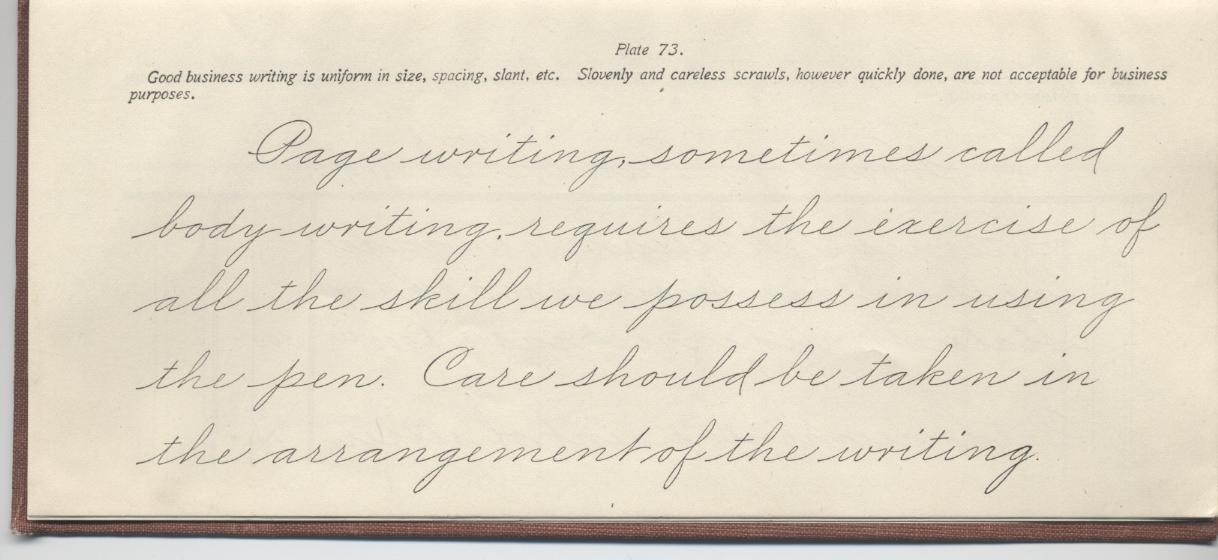 Plate 73.
Good business writing is uniform in size, spacing, slant, etc. Slovenly and careless scrawls, however quickly done, are not acceptable for business
purposes.
Page writing, sometimes called
body writing, requires the exercise of
all the skill we possess in using
the pen. Care should be taken in
the arrangement of the writing.